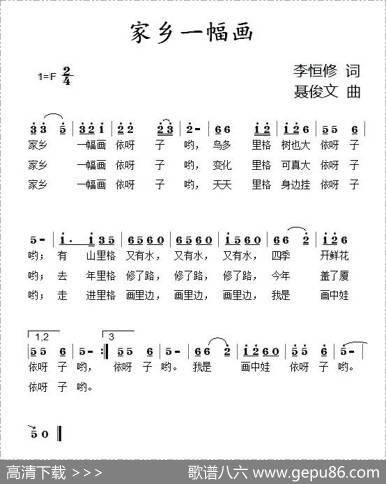 家乡一幅画
1=F 2/4
李恒修 词
聂俊文 曲
家乡 一幅画 依呀 子 哟, 鸟多 里格 树也大 依呀 子
家乡 一幅画 依呀 子 哟, 变化 里格 可真大 依呀 子
家乡 一幅画 依呀 子 哟, 天天 里格 身边挂 依呀 子
5 - | 1 . 1 35 | 6560 6560 | 6560 66 2 | 1 2 6 |
哟; 有 山里格 又有水, 又有水, 又有水, 四季 开鲜花
哟; 去 年里格 修了路, 修了路, 修了路, 今年 盖了厦
哟; 走 进里格 画里边, 画里边, 画里边, 我是 画中娃
1,2 3
依呀 子 哟, 依呀 子 哟。 我是 画中娃 依呀 子 哟。
依呀 子 哟。
5 0
高清下载 >>> 歌谱八六 www.gepu86.com